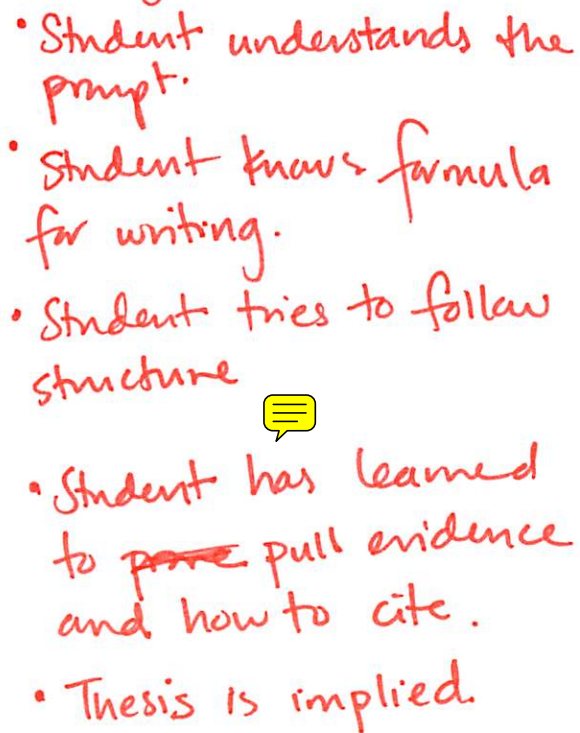 • Student understands the
prompt.
• Student knows formula
for writing.
• Student tries to follow
structure
• Student has learned
to prove pull evidence
and how to cite.
• Thesis is implied.